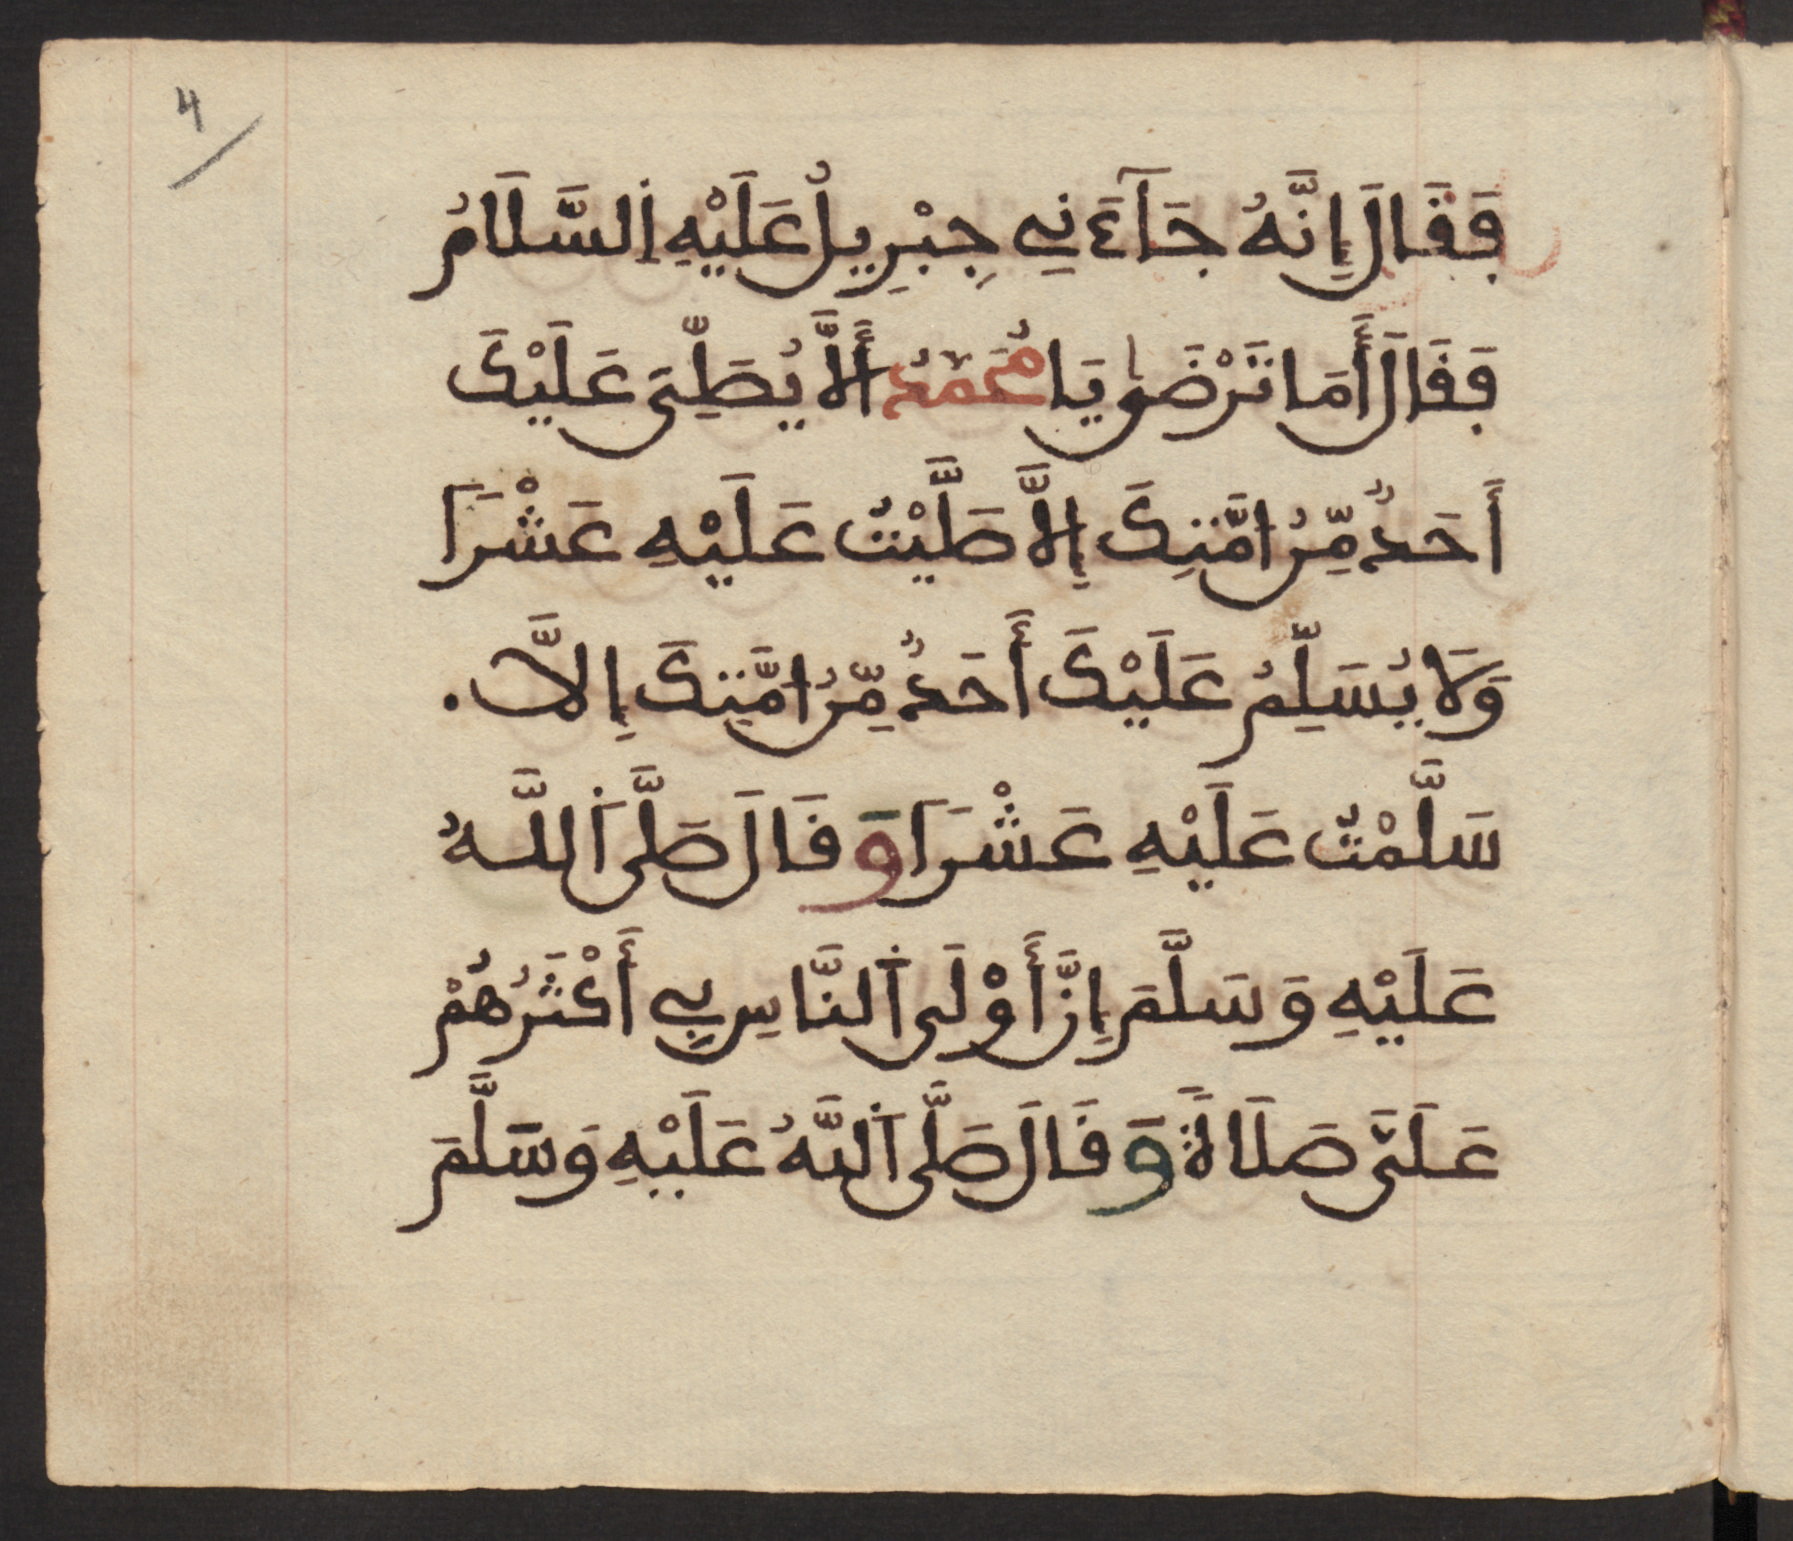 4
فَقَالَ إِنَّهُ جَآءَنِي جِبْرِيلُ عَلَيْهِ اِ۬لسَّلَامُ
فَقَالَ أَمَا تَرْضَىٰ يَا مُحَمَّدُ أَلَّا يُصَلِّىَ عَلَيْكَ
أَحَدٌ مِّنُ امَّتِكَ إِلَّا صَلَّيْتُ عَلَيْهِ عَشْرَا
وَلَا يُسَلِّمُ عَلَيْكَ أَحَدٌ مِّنُ امَّتِكَ إِلَّا.
سَلَّمْتُ عَلَيْهِ عَشْرَا وَقَالَ صَلَّى اَ۬للَّهُ
عَلَيْهِ وَسَلَّمَ إِنَّ أَوْلَى اَ۬لنَّاسِ بِي أَكْثَرُهُمْ
عَلَىَّ صَلَاةً وَقَالَ صَلَّى اَ۬للَّهُ عَلَيْهِ وَسَلَّمَ